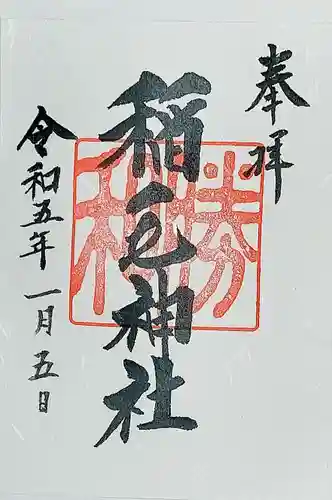 奉拝
稲毛神社
令和五年一月五日